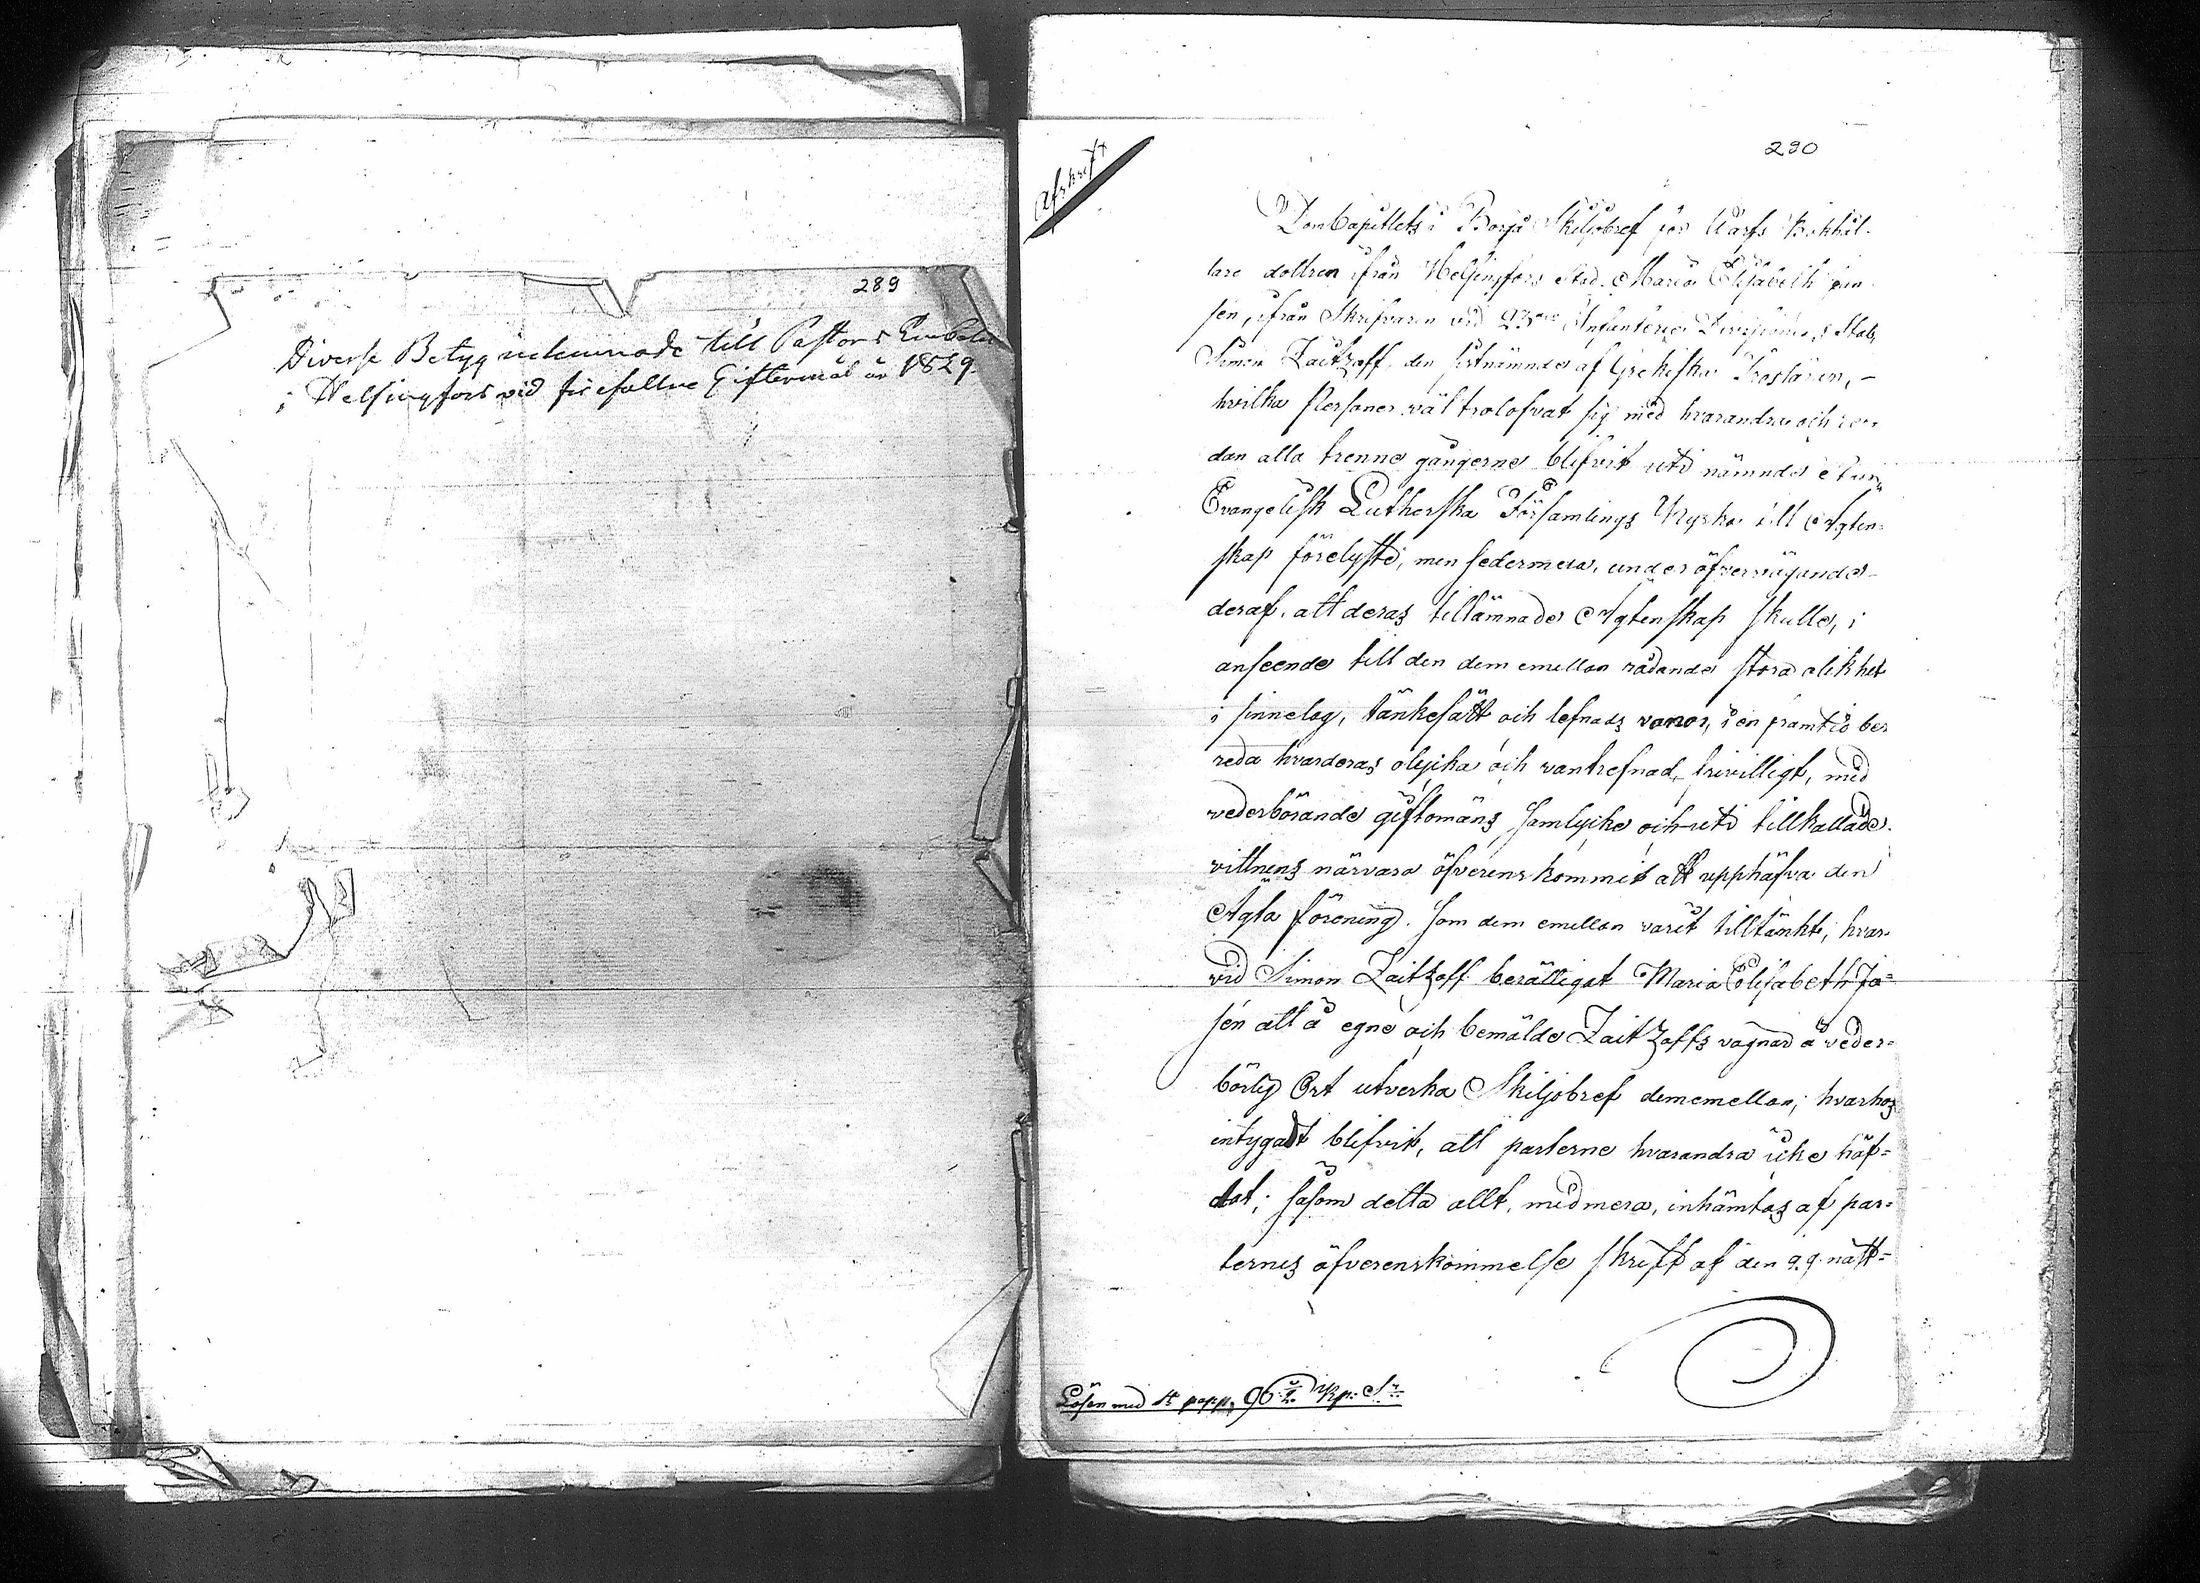 289
Diverse Betyg inlemnade till Pastors Embetet
i Helsingfors vid förefallne Giftermål år 1829.
Afskrift
290
DomCapitlets i Borgå Skiljobref för Warfs Bokhål-
lare dottren ifrån Helsingfors Stad Maria Elisabeth
sen, ifrån Skrifvaren vid 23die Infanterie Divisions Stab,
Simon Zaitzoff, den sistnämnde af Grekiska Trosläran, –
hvilka Personer väl trolofvat sig med hvarandra och
dan alla trenne gångerne blifvit uti nämnde Stads
Evangelisk Lutherska Församlings Kyrka till Ägten-
skap förelyste, men sedermera, under öfvervägande
deraf, att deras tillämnade Ägtenskap skulle, i
anseende till den dem emellan rådande stora olikhet
i sinnelag, tänkesätt och lefnads vanor, i en framtid be-
reda hvarderas olycka och vantrefnad, frivilligt, med
vederbörande giftomäns samtycke och uti tillkallade
vittnens närvaro öfverenskommit att upphäfva den
Ägta förening, som dem emellan varit tilltänkt, hvar-
vid Simon Zaitzoff berättigat Maria Elisabeth Ja-
sén att å egne och bemälde Zaitzoffs vägnar å veder-
börlig Ort utverka Skiljobref dememellan; hvarhos
intygadt blifvit, att parterne hvarandra icke häf-
dat; såsom detta allt, medmera, inhämtas af par-
ternes öfverenskommelse skrift af den 9. 9. näst-
Lösen med St papp. 96 Kp. Sr